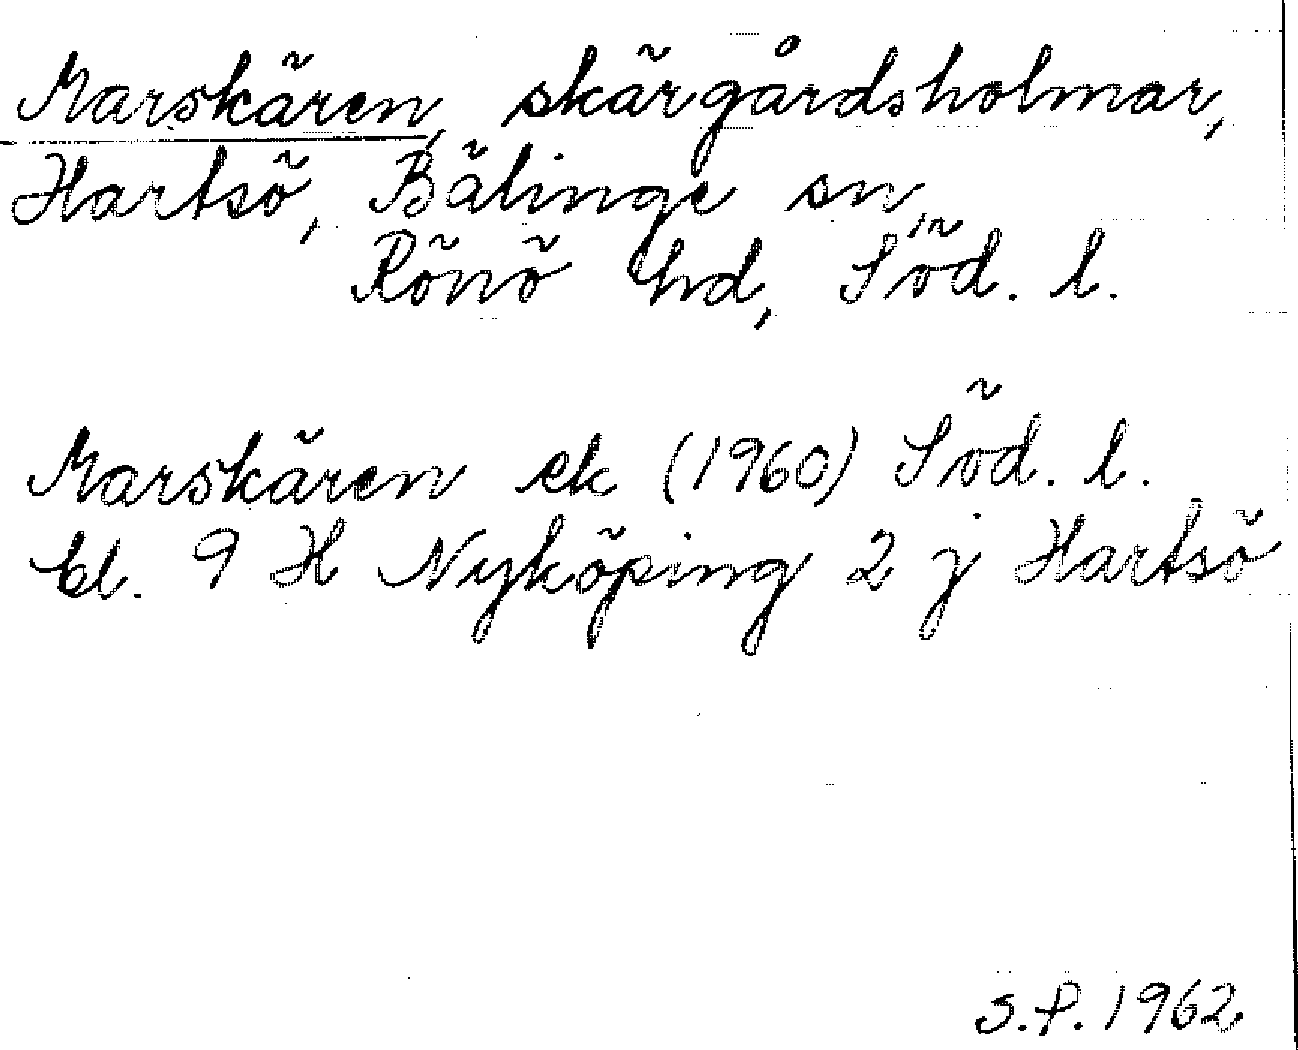 Marskären, skärgårdsholmar,
Hartsö, Bälinge sn,
Rönö hd, Söd. l.
Marskären ek (1960) Söd. l.
bl. 9 H Nyköping 2 j Hartsö
S.P. 1962